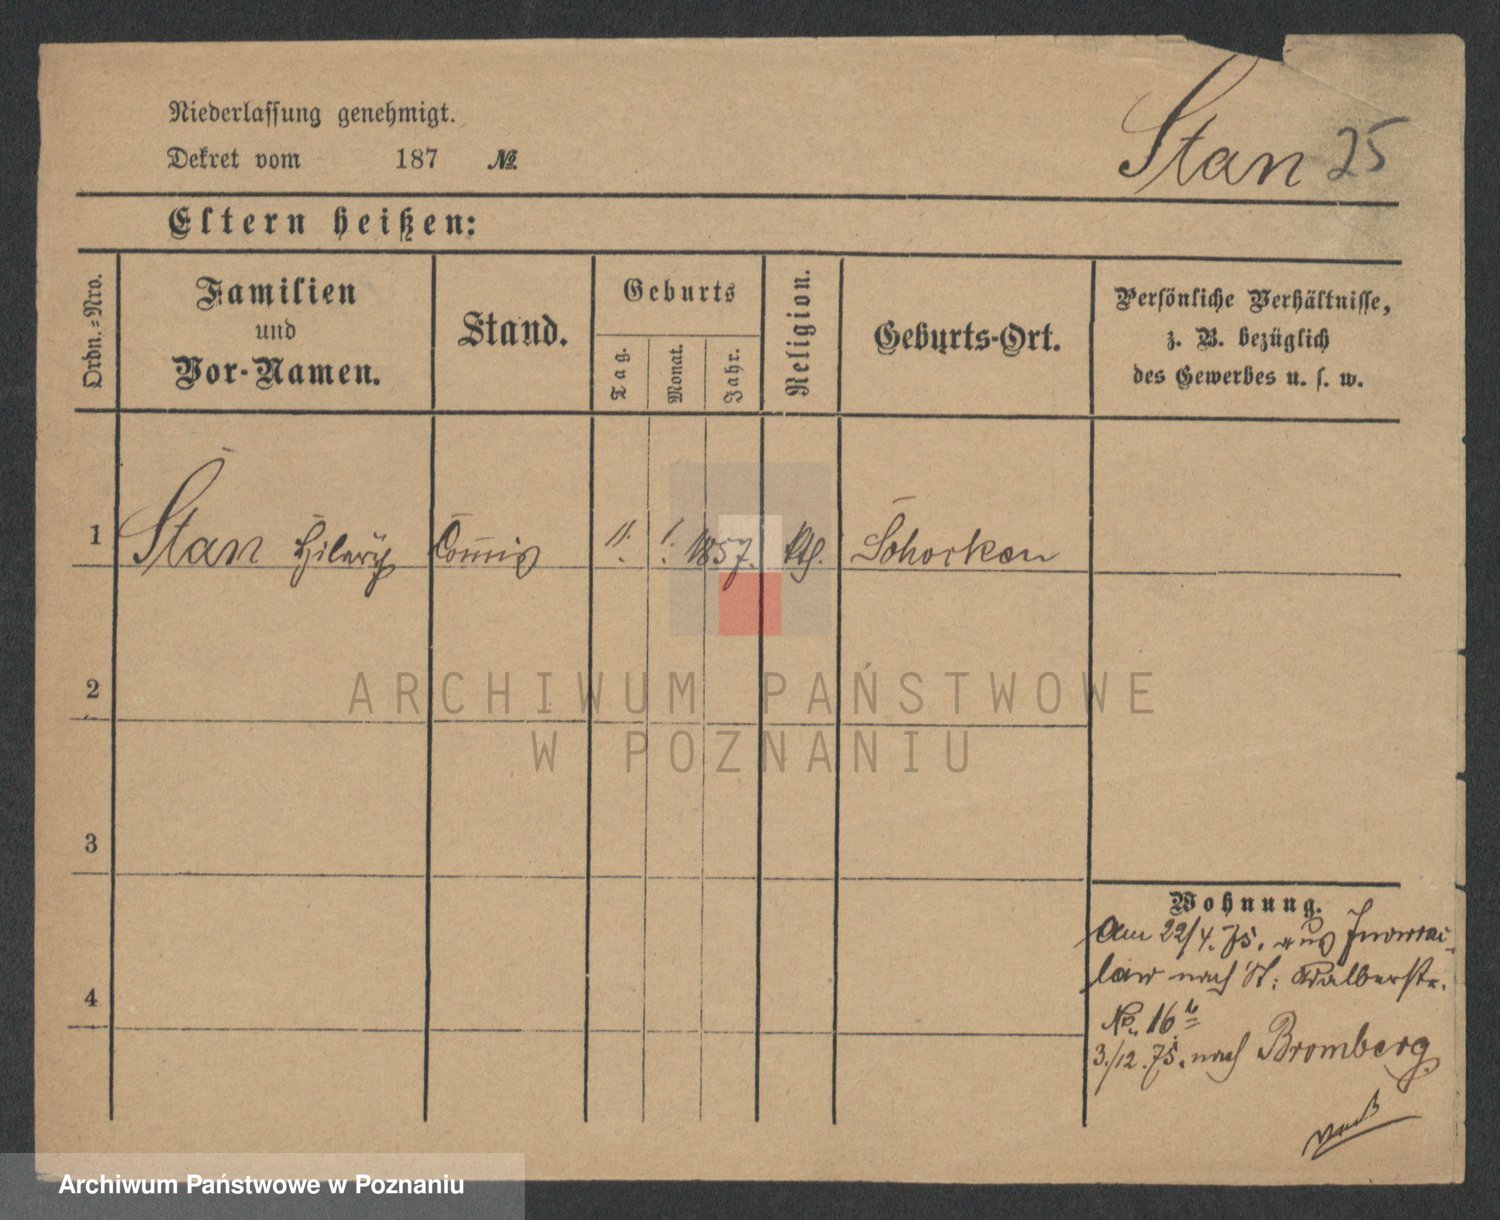 Niederlassung genehmigt.
Dekret vom 187 №
Stan 25
Eltern heißen:
Ordn.-Nro.
Familien
und
Vor-Namen.
Stand.
Geburts
Tag.
Monat.
Jahr.
Religion.
Geburts-Ort.
Persönliche Verhältnisse,
z. B. bezüglich
des Gewerbes u. s. w.
1 Stan Hilary Commis 11. 1. 1857. kth. Schocken
2
3
4
ARCHIWUM PAŃSTWOWE
W POZNANIU
Wohnung.
Am 22/4. 75. aus Inowraz-
law nach St: Adalbertstr.
No. 16
3./12. 75. nach Bromberg
Archiwum Państwowe w Poznaniu